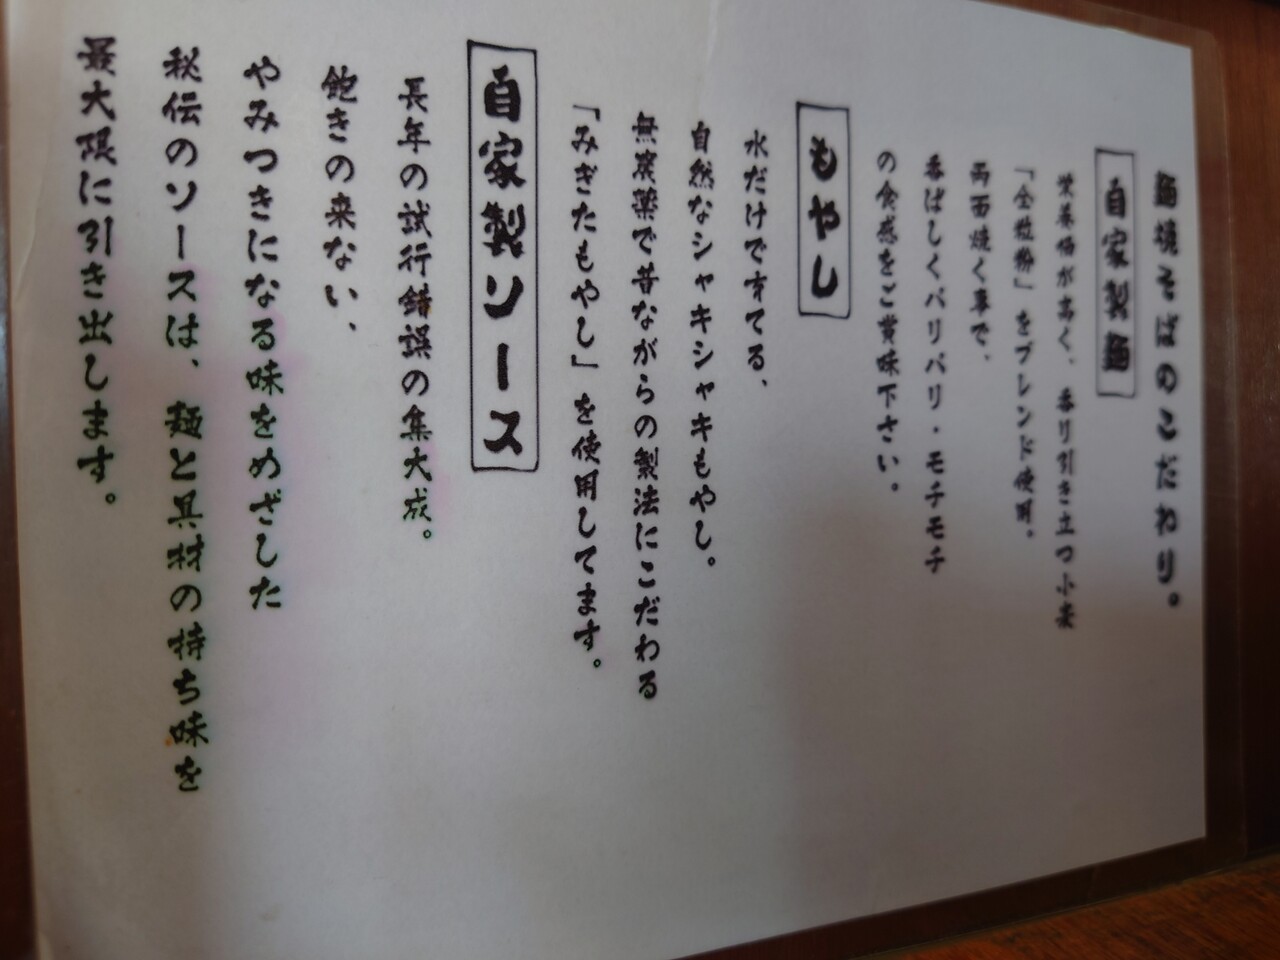 麺焼そばのこだわり。
自家製麺
栄養価が高く、香り引き立つ小麦
「全粒粉」をブレンド使用。
両面焼く事で、
香ばしくパリパリ・モチモチ
の食感をご賞味下さい。
もやし
水だけですてる、
自然なシャキシャキもやし。
無農薬で昔ながらの製法にこだわる
「みぎたもやし」を使用してます。
自家製ソース
長年の試行錯誤の集大成。
飽きの来ない、
やみつきになる味をめざした
秘伝のソースは、麺と具材の持ち味を
最大限に引き出します。